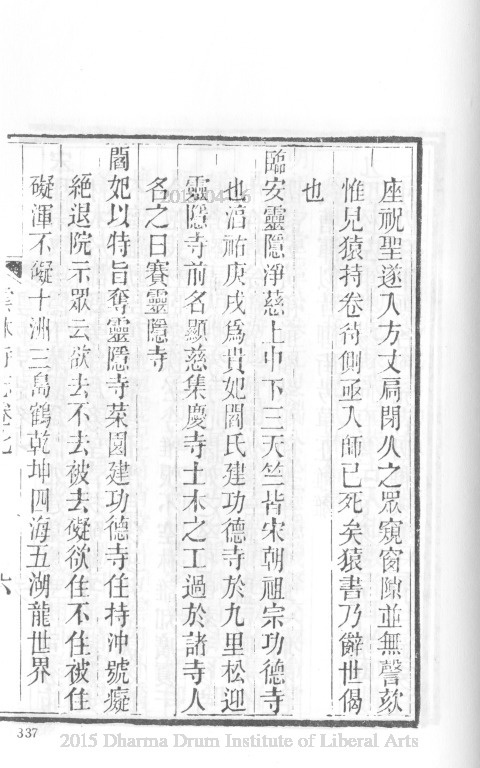 座祝聖遂入方丈扃閉久之眾窺窗隙並無謦欬
惟見猿持卷侍側亟入師已死矣猿書乃辭世偈
也
臨安靈隱淨慈上中下三天竺皆宋朝祖宗功德寺
也淳祐庚戌爲貴妃閻氏建功德寺於九里松迎
靈隱寺前名顯慈集慶寺土木之工過於諸寺人
名之曰賽靈隱寺
閻妃以特旨奪靈隱寺菜園建功德寺住持沖號癡
絕退院示眾云欲去不去被去礙欲住不住被住
礙渾不礙十洲三島鶴乾坤四海五湖龍世界
卷七
六
337
2015 Dharma Drum Institute of Liberal Arts